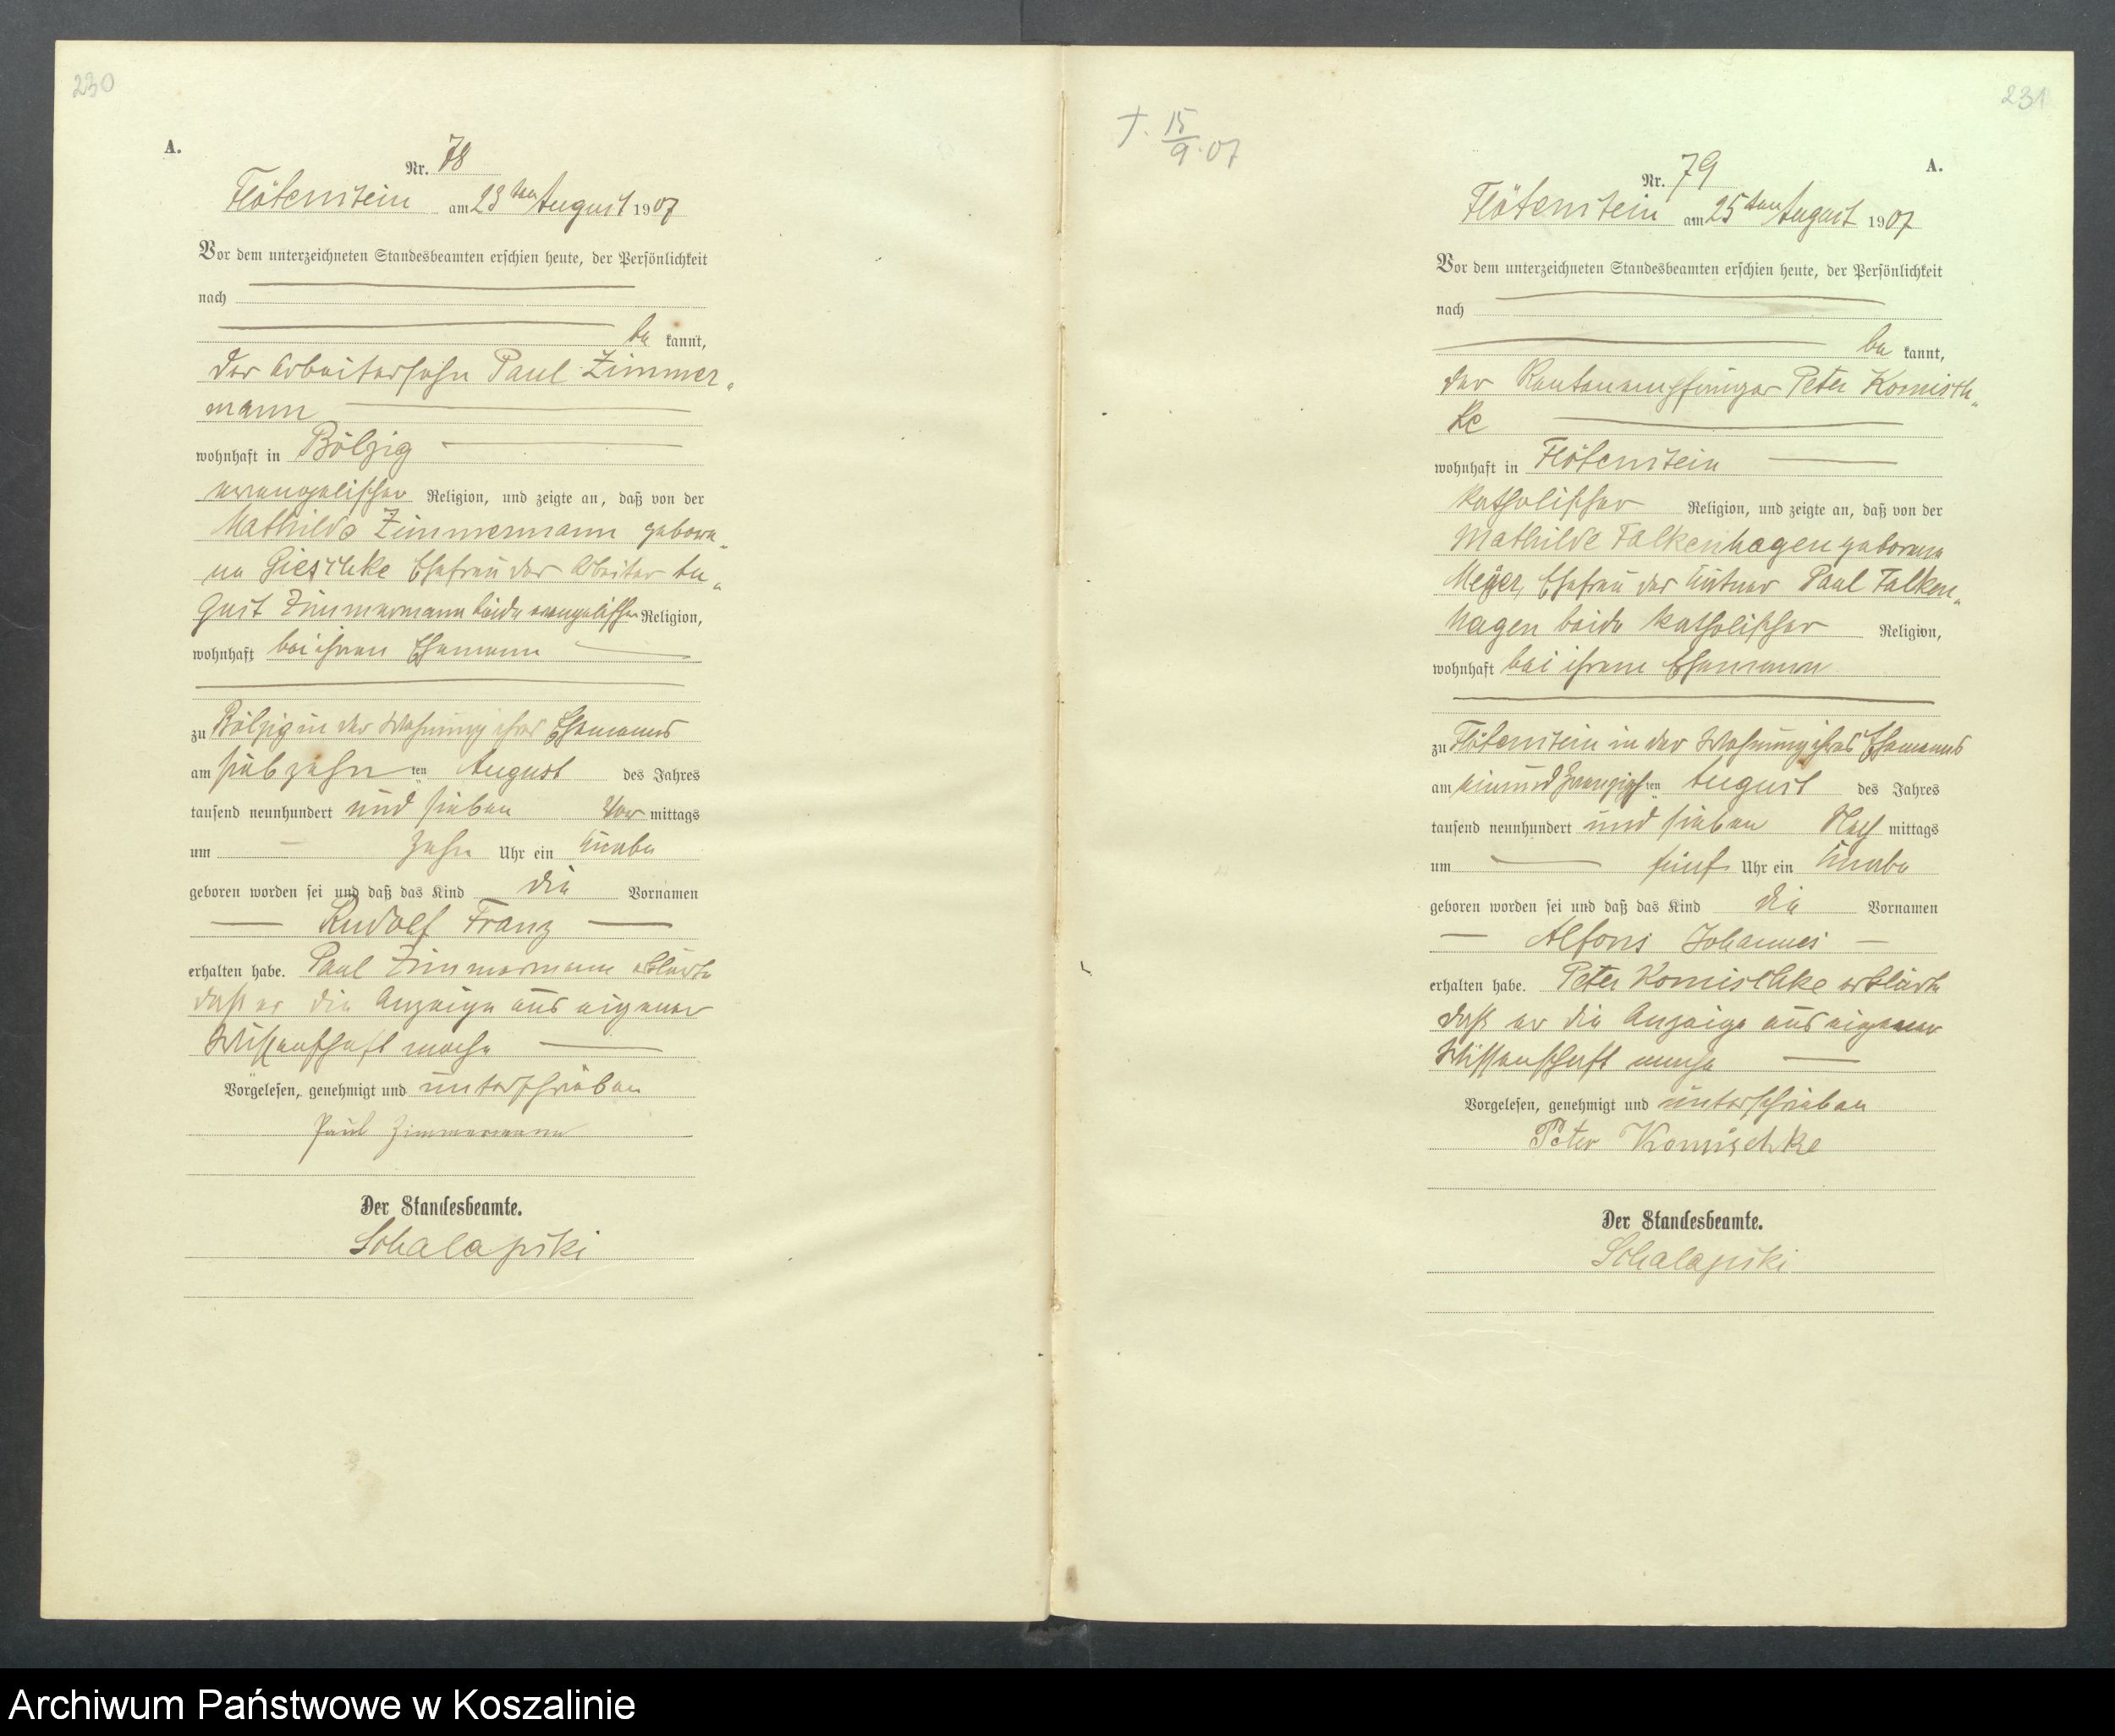 230
A.
Nr. 78
Flötenstein am 23ten August 1907
Vor dem unterzeichneten Standesbeamten erschien heute, der Persönlichkeit
nach
be kannt,
der Arbeitersohn Paul Zimmer„
mann
wohnhaft in Bölzig
evangelischer Religion, und zeigte an, daß von der
Mathilde Zimmermann gebore„
ne Gieschke Ehefrau des Arbeiter Au„
gust Zimmermann beide evangelischer Religion,
wohnhaft bei ihrem Ehemann
zu Bölzig in der Wohnung ihres Ehemanns
am siebzehn ten August des Jahres
tausend neunhundert und sieben Vor mittags
um zehn Uhr ein Knabe
geboren worden sei und daß das Kind die Vornamen
Rudolf Franz
erhalten habe. Paul Zimmermann erklärte
daß er die Anzeige aus eigener
Wissenschaft mache
Vorgelesen, genehmigt und unterschrieben
Paul Zimmermann
Der Standesbeamte.
Schalapski
231
†. 15/9. 07
A.
Nr. 79
Flötenstein am 25ten August 1907
Vor dem unterzeichneten Standesbeamten erschien heute, der Persönlichkeit
nach
be kannt,
der Rentenempfänger Peter Komisch„
ke
wohnhaft in Flötenstein
katholischer Religion, und zeigte an, daß von der
Mathilde Falkenhagen geborene
Meyer, Ehefrau des Kätner Paul Falken„
hagen beide katholischer Religion,
wohnhaft bei ihrem Ehemann
zu Flötenstein in der Wohnung ihres Ehemanns
am einundzwanzigsten August des Jahres
tausend neunhundert und sieben Nach mittags
um fünf Uhr ein Knabe
geboren worden sei und daß das Kind die Vornamen
Alfons Johannes
erhalten habe. Peter Komischke erklärte
daß er die Anzeige aus eigener
Wissenschaft mache
Vorgelesen, genehmigt und unterschrieben
Peter Komischke
Der Standesbeamte.
Schalapski
Archiwum Państwowe w Koszalinie